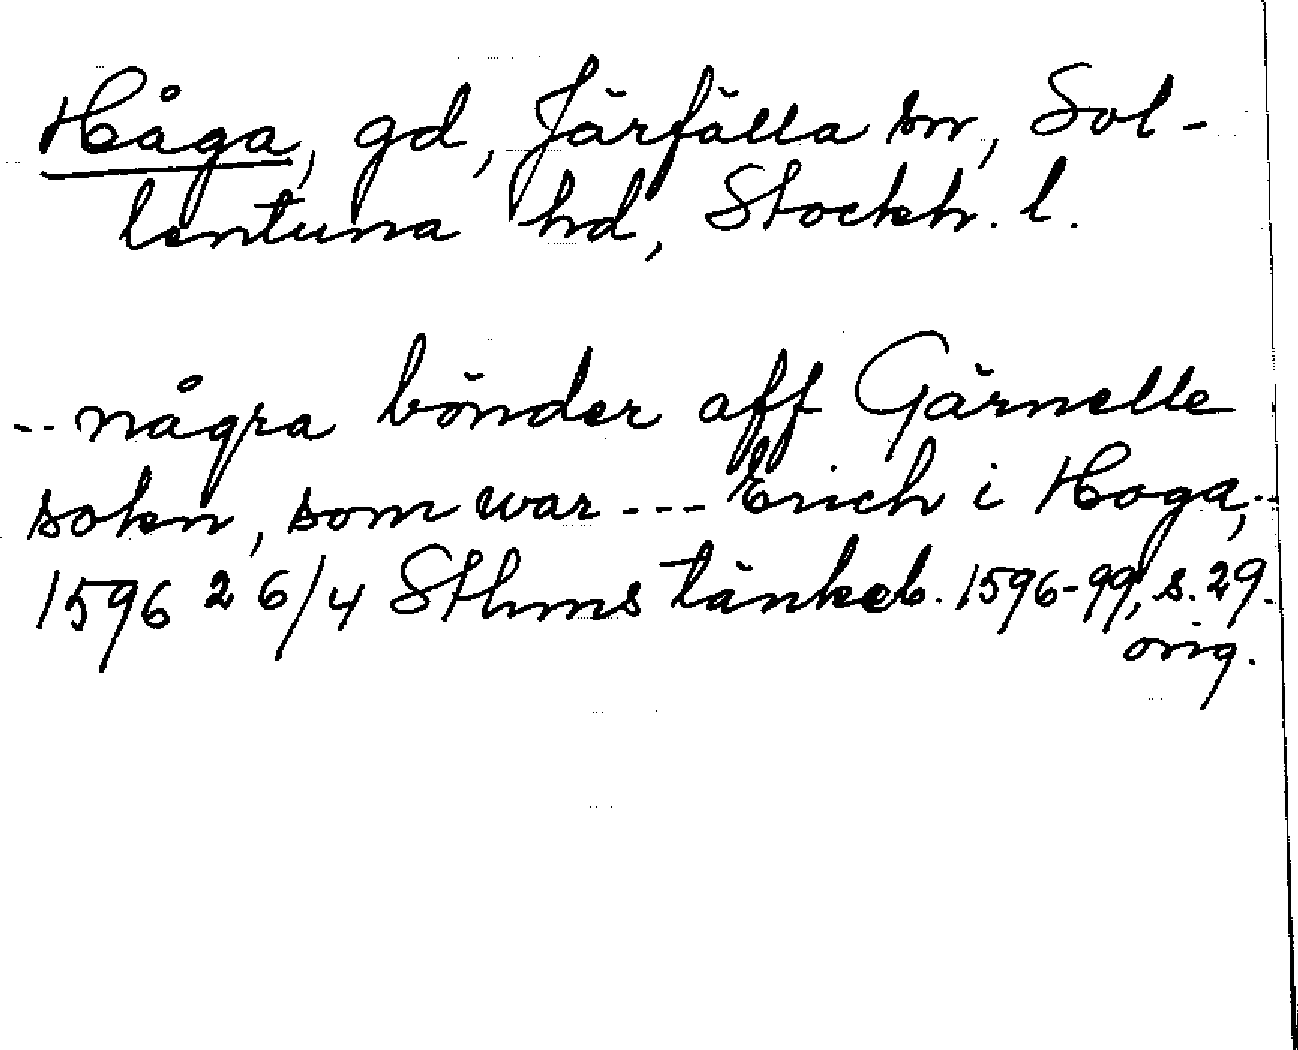 Håga, gd, Järfälla sn, Sol-
lentuna hd, Stockh. l.
-- några bönder aff Gärnelle
sokn, som war --- Erich i Hoga, --
1596 26/4 Sthms tänkeb. 1596-99, s. 29.
orig.